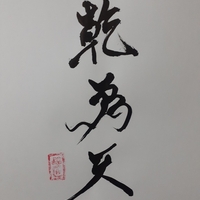 乾為天